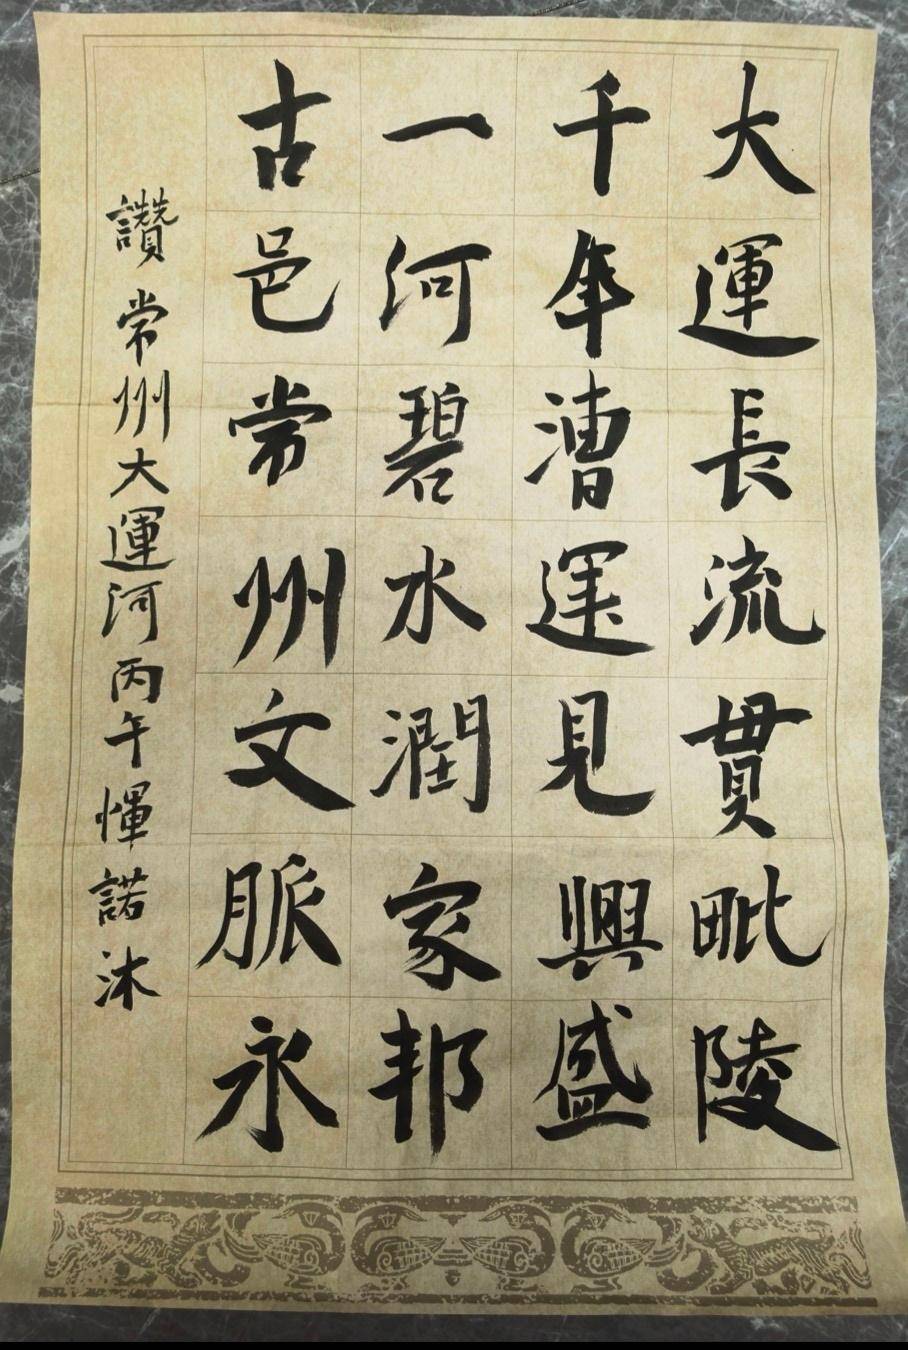 大運長流貫毗陵
千年漕运見興盛
一河碧水潤家邦
古邑常州文脈永
讚常州大運河丙午惲諾沐